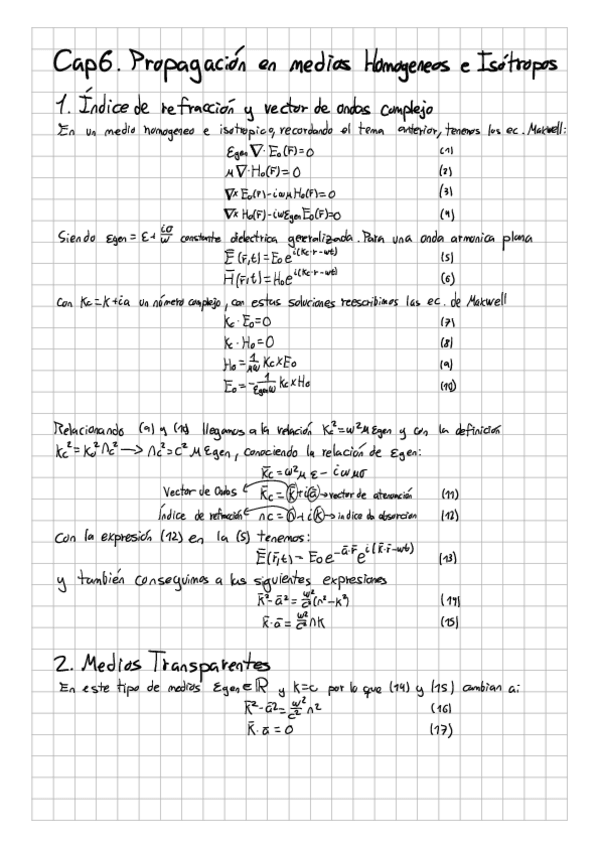 Cap6. Propagación en medios Homogeneos e Isótropos
1. Índice de refracción y vector de ondas complejo
En un medio homogeneo e isotropico, recordando el tema anterior, tenemos las ec. Maxwell:
εgen ∇·E₀(r̄)=0 (1)
μ∇·H₀(r̄)=0 (2)
∇×E₀(r)-iωμH₀(r̄)=0 (3)
∇×H₀(r̄)-iωεgenE₀(r̄)=0 (4)
Siendo εgen = ε+ iσ/ω constante dielectrica generalizada. Para una onda armonica plana
Ē(r̄,t)=E₀e^{i(kc·r-ωt)} (5)
H̄(r̄,t)=H₀e^{i(kc·r-ωt)} (6)
Con Kc=K+ia un número complejo, con estas soluciones reescribimos las ec. de Maxwell
Kc·E₀=0 (7)
Kc·H₀=0 (8)
H₀= 1/μω Kc×E₀ (9)
E₀=- 1/εgenω Kc×H₀ (10)
Relacionando (9) y (10) llegamos a la relación Kc²=ω²μεgen y con la definición
kc²=k₀²nc² → nc²=c²μεgen, conociendo la relación de εgen:
K̄c=ω²με-iωμσ
Vector de Ondas K̄c=k̄+iā → vector de atenuación (11)
Índice de refracción nc=n+ik → indice de absorcion (12)
Con la expresión (12) en la (5) tenemos:
Ē(r̄,t)-E₀e^{-ā·r̄}e^{i(k̄·r̄-ωt)} (13)
y también conseguimos a las siguientes expresiones
k̄²-ā²= ω²/c² (n²-k²) (14)
k̄·ā= ω²/c² nk (15)
2. Medios Transparentes
En este tipo de medios εgen∈ℝ y k=c por lo que (14) y (15) cambian a:
k̄²-ā²= ω²/c² n² (16)
k̄·ā=0 (17)